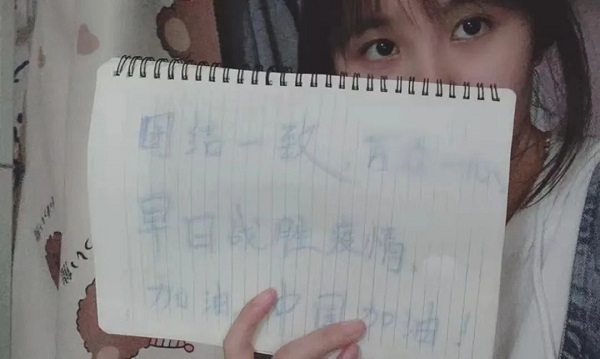 团结一致,万众一心
早日战胜疫情,
加油,中国加油!